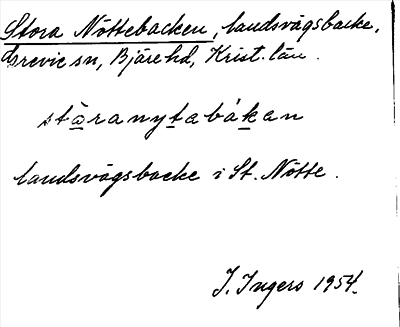 Stora Nöttebacken, landsvägsbacke,
Grevie sn, Bjäre hd, Krist. län.
stàranytabákan
landsvägsbacke i St. Nötte.
I. Ingers 1954.